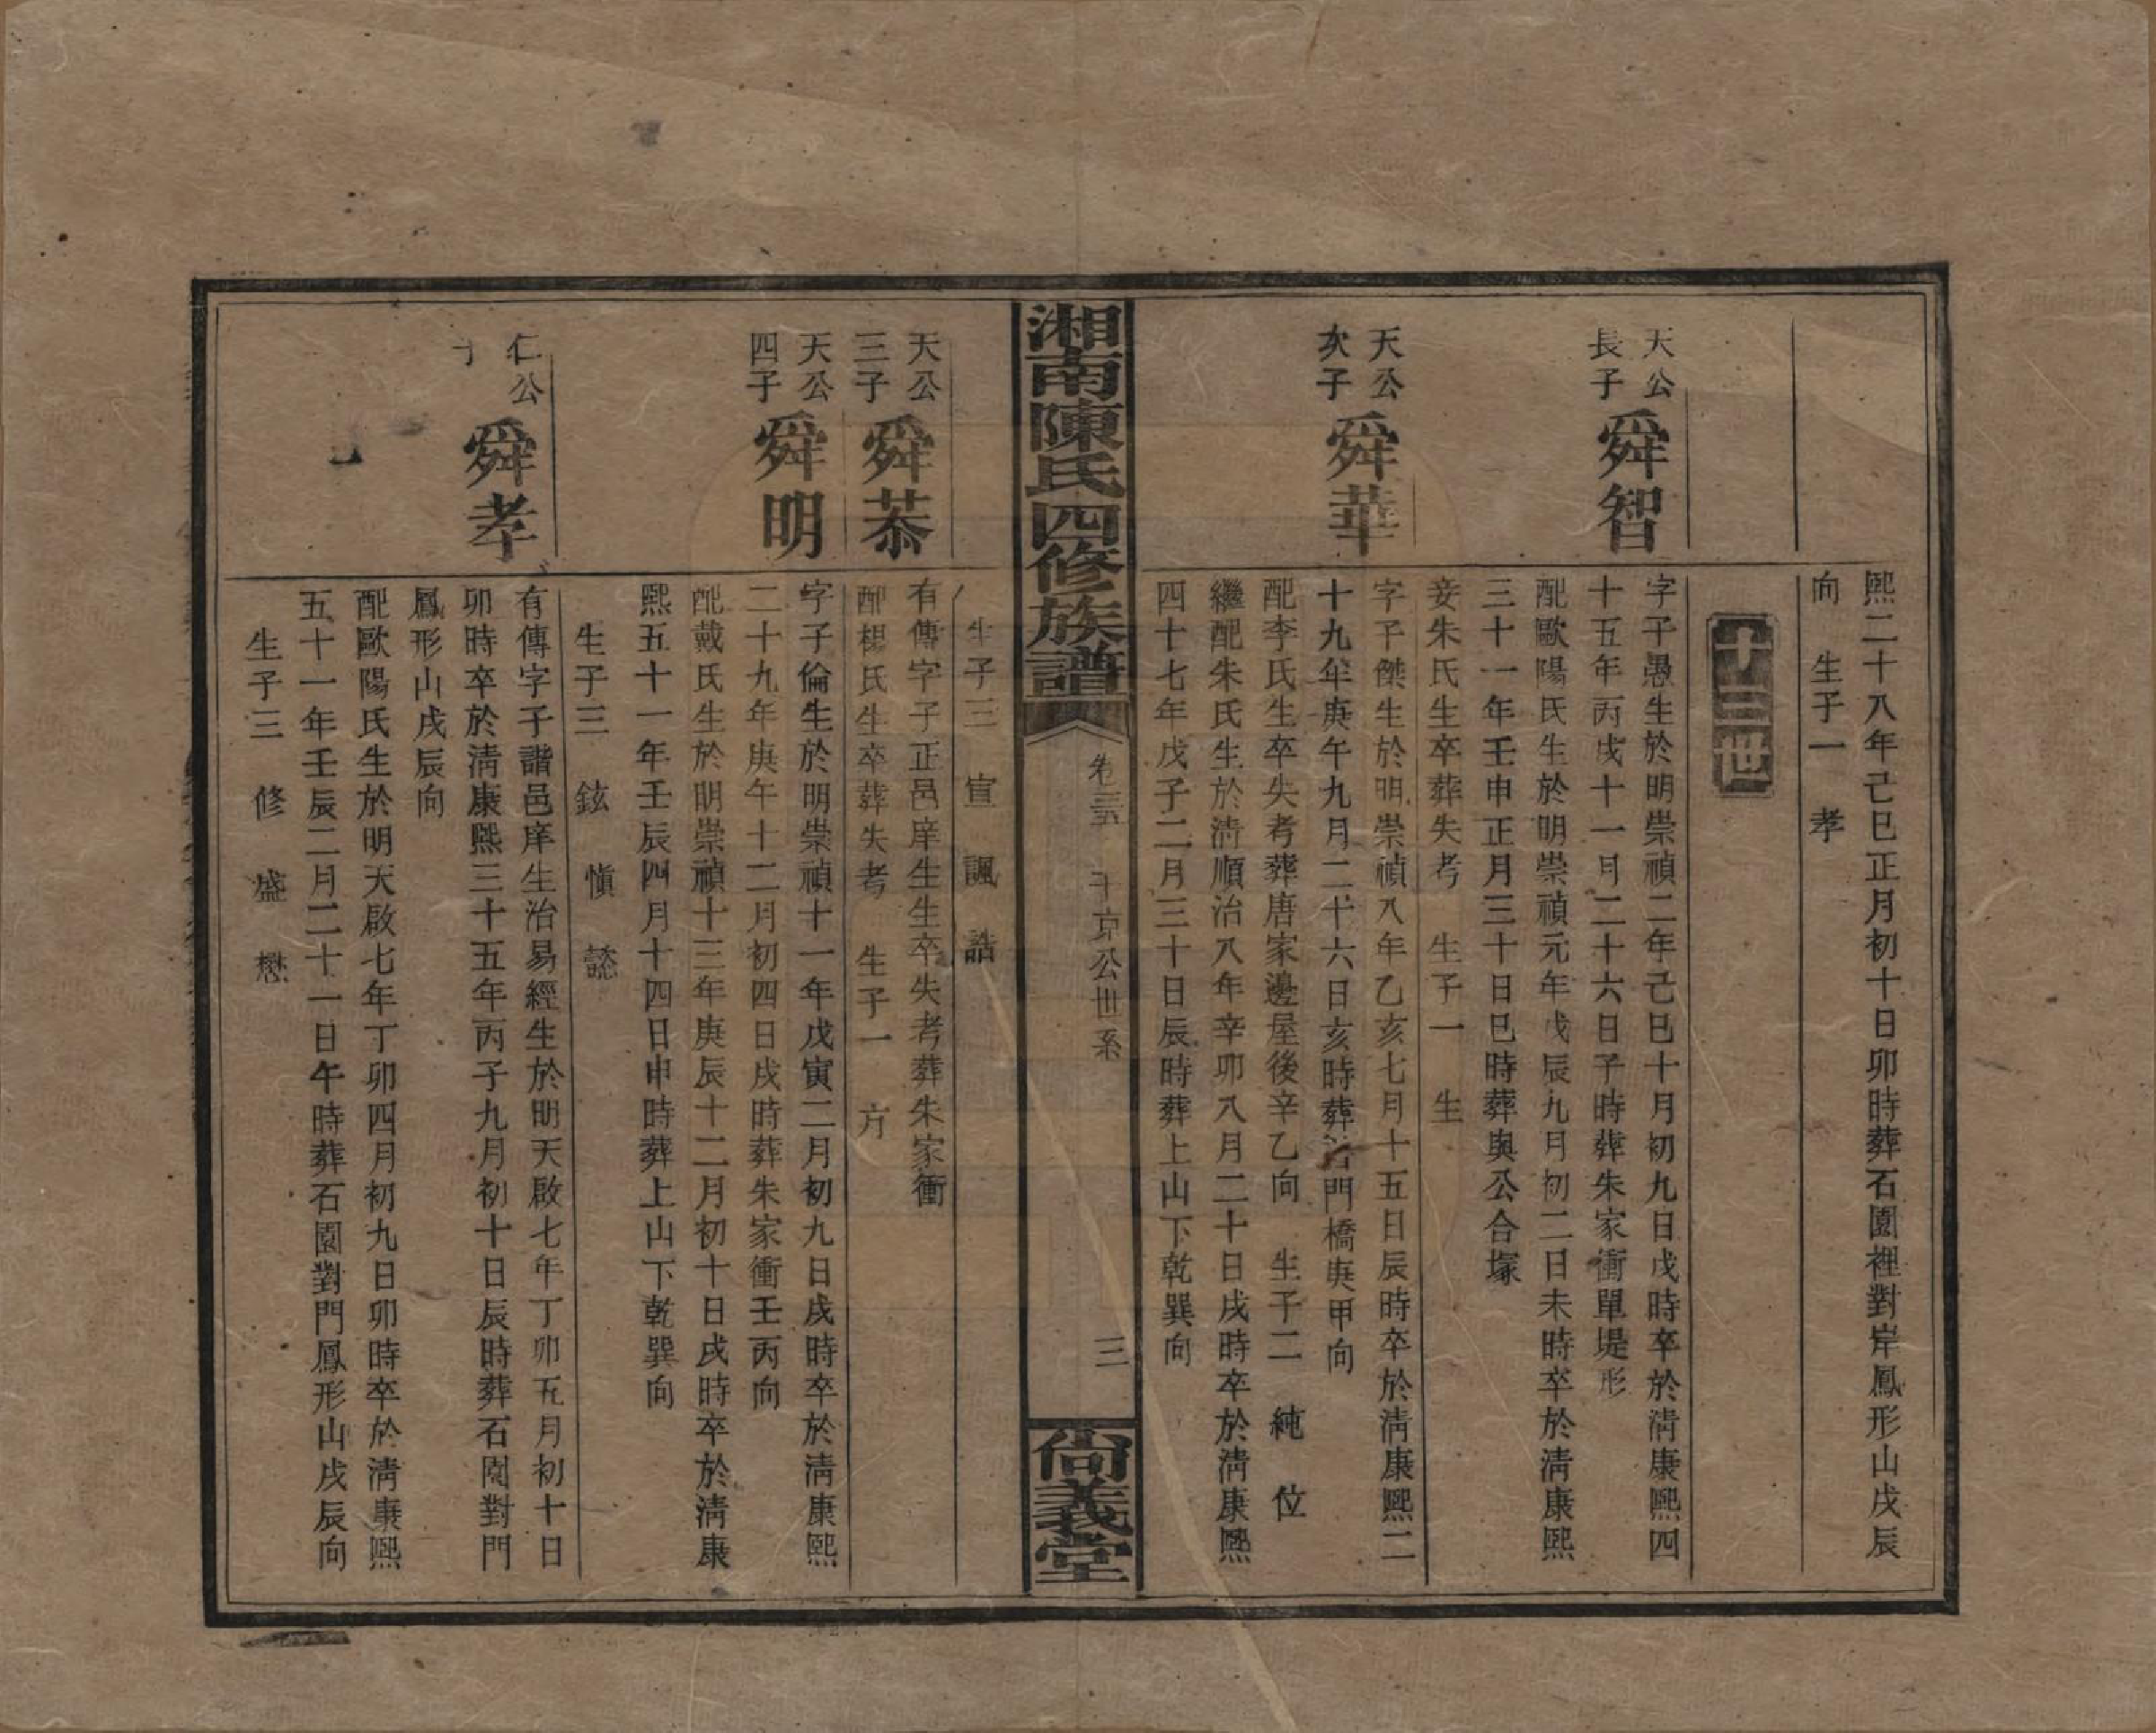 熙二十八年己巳正月初十日卯時葬石園裡對岸鳳形山戌辰
向　生子一　孝
十三世
天公長子
舜智
字子愚生於明崇禎二年己巳十月初九日戌時卒於淸康熙四
十五年丙戌十一月二十六日子時葬朱家衝單堤形
配歐陽氏生於明崇禎元年戊辰九月初二日未時卒於淸康熙
三十一年壬申正月三十日巳時葬與公合塚
妾朱氏生卒葬失考　生子一　生
天公次子
舜華
字子傑生於明崇禎八年乙亥七月十五日辰時卒於淸康熙二
十九年庚午九月二十六日亥時葬 門橋庚甲向
配李氏生卒失考葬唐家邊屋後辛乙向　生子二　純　位
繼配朱氏生於淸順治八年辛卯八月二十日戌時卒於淸康熙
四十七年戊子二月三十日辰時葬上山下乾巽向
湘南陳氏四修族譜
卷三　十 京公世系
三
尙義堂
生子三　宣　諷　誥
天公三子
舜恭
有傳字子正邑庠生生卒失考葬朱家衝
配楊氏生卒葬失考　生子一　方
天公四子
舜明
字子倫生於明崇禎十一年戊寅二月初九日戌時卒於淸康熙
二十九年庚午十二月初四日戌時葬朱家衝壬丙向
配戴氏生於明崇禎十三年庚辰十二月初十日戌時卒於淸康
熙五十一年壬辰四月十四日申時葬上山下乾巽向
生子三　鉉　愼　
仁公子
舜孝
有傳字子諧邑庠生治易經生於明天啟七年丁卯五月初十日
卯時卒於淸康熙三十五年丙子九月初十日辰時葬石園對門
鳳形山戌辰向
配歐陽氏生於明天啟七年丁卯四月初九日卯時卒於淸康熙
五十一年壬辰二月二十一日午時葬石園對門鳳形山戌辰向
生子三　修　盛　懋